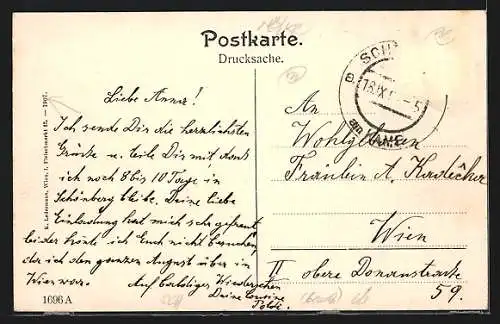 Postkarte.
Drucksache.
SCH
18.IX
5
am KAMP
Liebe Anna!
Ich sende Dir die herzlichsten
Grüsse u. teile Dir mit dass
ich noch 8 bis 10 Tage in
Schönberg bleibe. Deine liebe
Einladung hat mich sehr gefreut
leider konnte ich Euch nicht besuchen,
da ich den ganzen August über in
Wien war. Auf baldiges Wiedersehen
Deine Cousine
Poldi.
An
Wohlgeboren
Fräulein A.
Wien
II obere Donaustrasse
59.
K. Ledermann, Wien, I. Fleischmarkt 12. — 1907.
1696 A